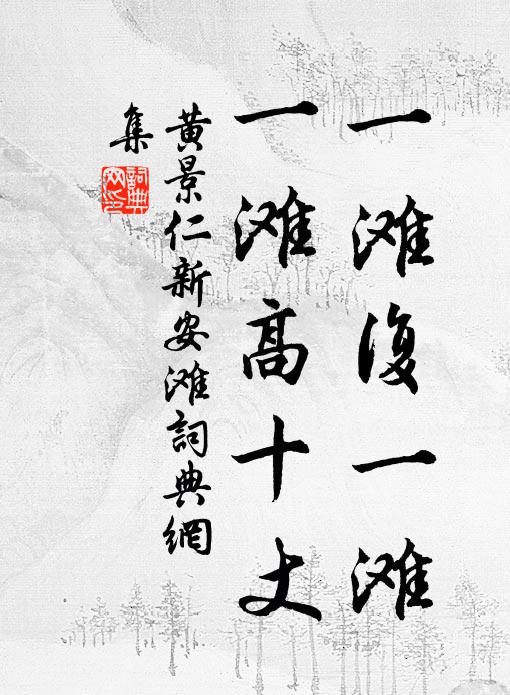 一滩复一滩
一滩高十丈
黄景仁新安滩詞典網
集
詞典網